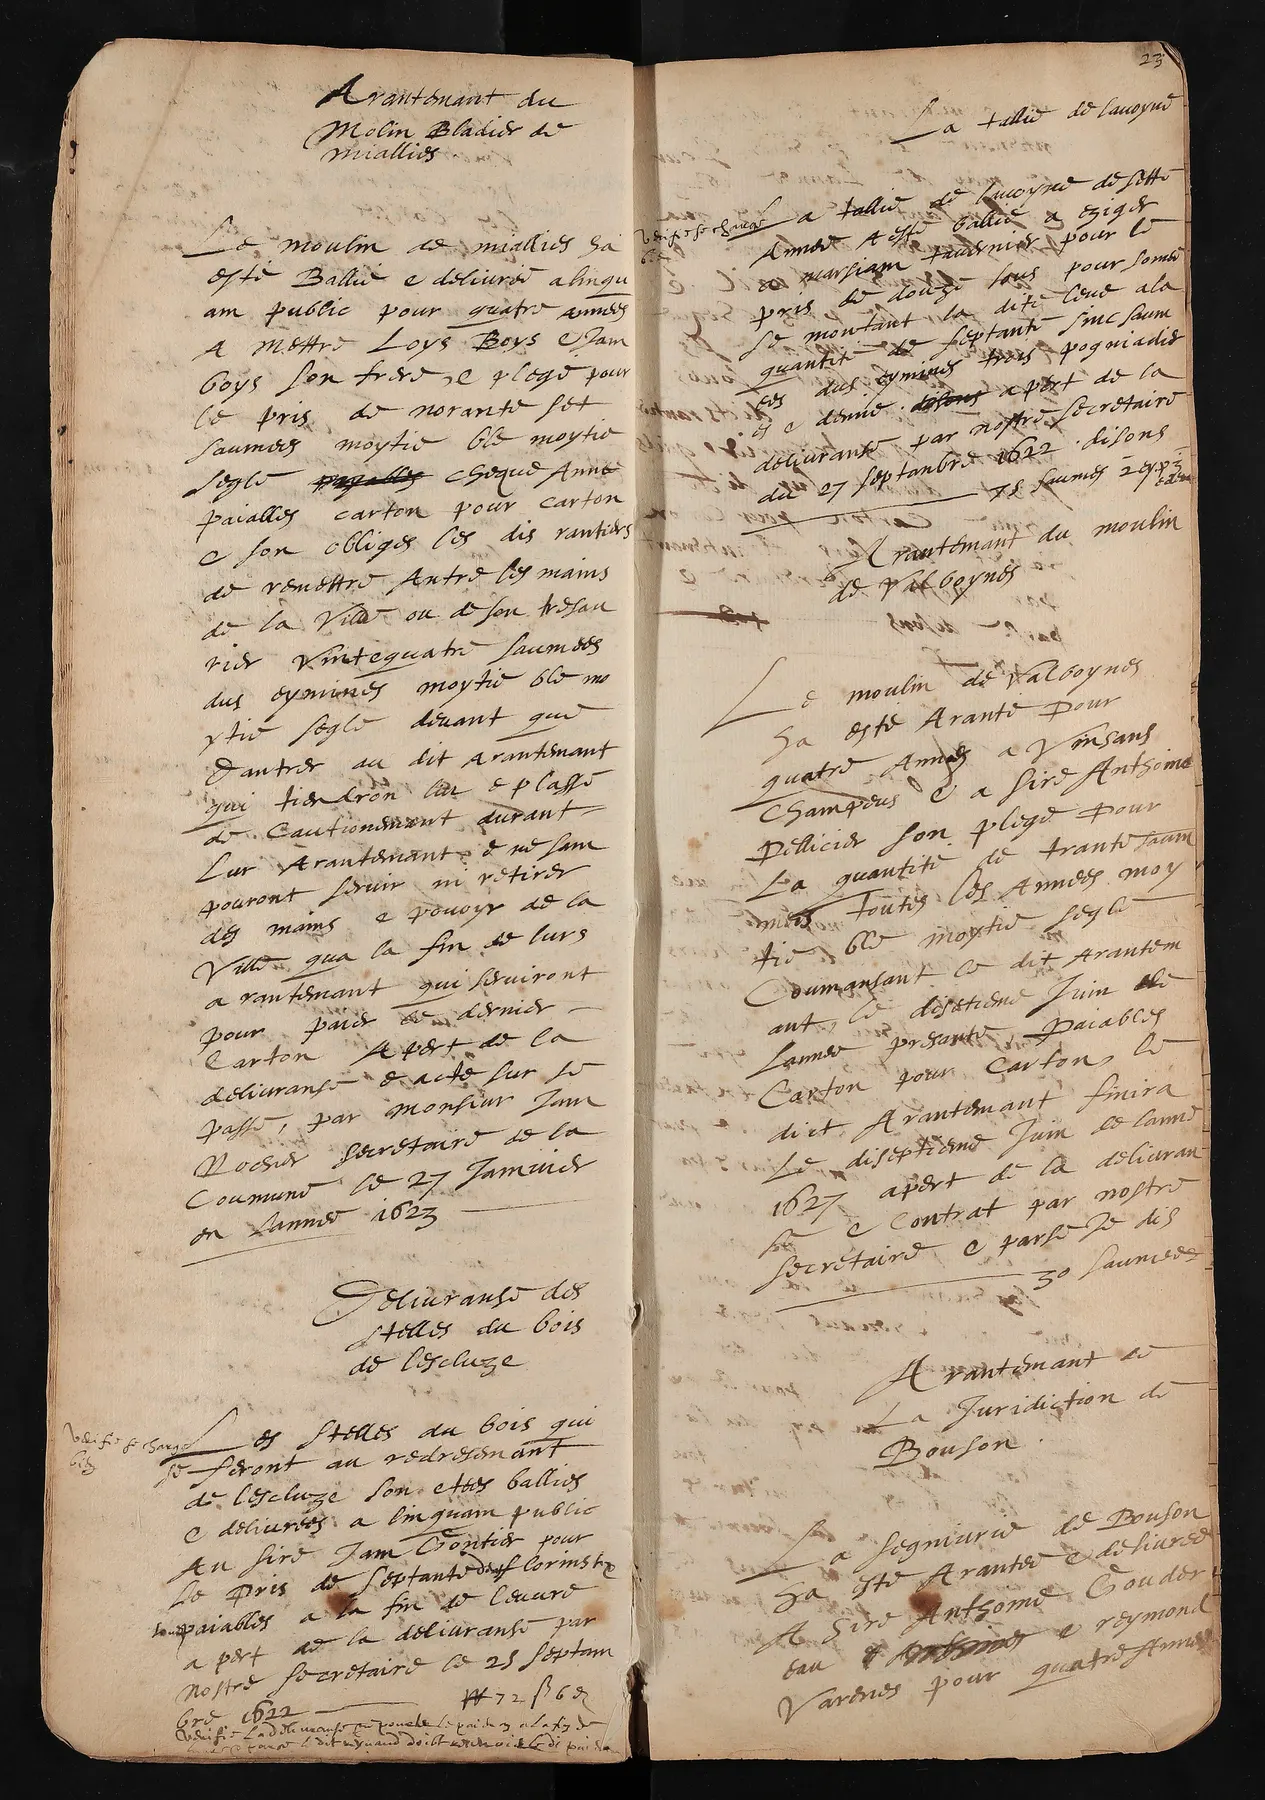 Arantemant du
Molin Bladier de
mialliés
Le moulin de mialliés ha
esté Ballié e delivrié a linqu
am public pour quatre annees
A Mettre Loys Boys e Jam
boys son frere, e plege pour
le pris de noranté set
saumees moytié blé moytié
seglé payablés cheque Anné
paiallés carton pour carton
e son obligés les dis rantiers
de remettre Antre les mains
de la Ville ou de son tresau
rier vintequatre saumees
dus eyminés moytié blé mo
ytié seglé devant que
Dantrer au dit Arantemant
qui tiendron lieu e plasse
de Cautionemant durant
Lur Arantemant e ne sam
pouront servir ni retirer
des mains e povoyr de la
Ville qua la fin de lurs
arantemant qui serviront
pour paier le dernier
Carton Apert de la
delivranse e acte sur se
passé, par monsiur Jam
Rocher secretaire de la
Coumune le 27 Janvier
en lannee 1623
Delivranse des
stelles du bois
de lescluze
Verifié se charge
Les stelles du bois qui
se feront au redresemant
de lescluze son etees balliés
e delivrees a linquam public
Au sire Jam Gontier pour
Le Pris de septante dus florins six
sous paiablés a la fin de leuvre
apert de la delivranse par
nostre secretaire le 25 septam
bre 1622 ff 72 ß 6 d
Verifié La delivranse
23
La tallie de lavoyne
Verifié se charge
La tallie de lavoyne de sette
Annee A esté ballié a eziger
a marsiam tavernier pour le
pris de douze sous pour somee
se montant la dite leve a la
quantité de septante sinc saum
ees dus eyminés trois pogniadie
es e demie apert de la
delivranse par nostre secretaire
du 27 septanbre 1622 disons
75 saumes 2 ey p 3
Arantemant du moulin
de Valboynes
Le moulin de Valboynes
ha esté Aranté pour
quatre Annees a Vinsans
Champeus e a sire Anthoine
Pellicier son plege pour
La quantité de trante saum
mees toutes les Annees moy
tié blé moytié seglé
Coumansant le dit Arantem
ant, le disetieme Juin de
lannee presante paiables
Carton pour Carton, le
dict Arantemant finira
Le diseptieme Juin de lanne
1627 apert de la delivran
se e Contrat par nostre
secretaire e parse Je dis
30 saumees
Arantemant de
La Juridiction de
Bouson.
La segniurie de Bouson
ha esté Arantee e delivree
A sire Anthoine Gouder
eau e reymond
Varenes pour quatre Annees